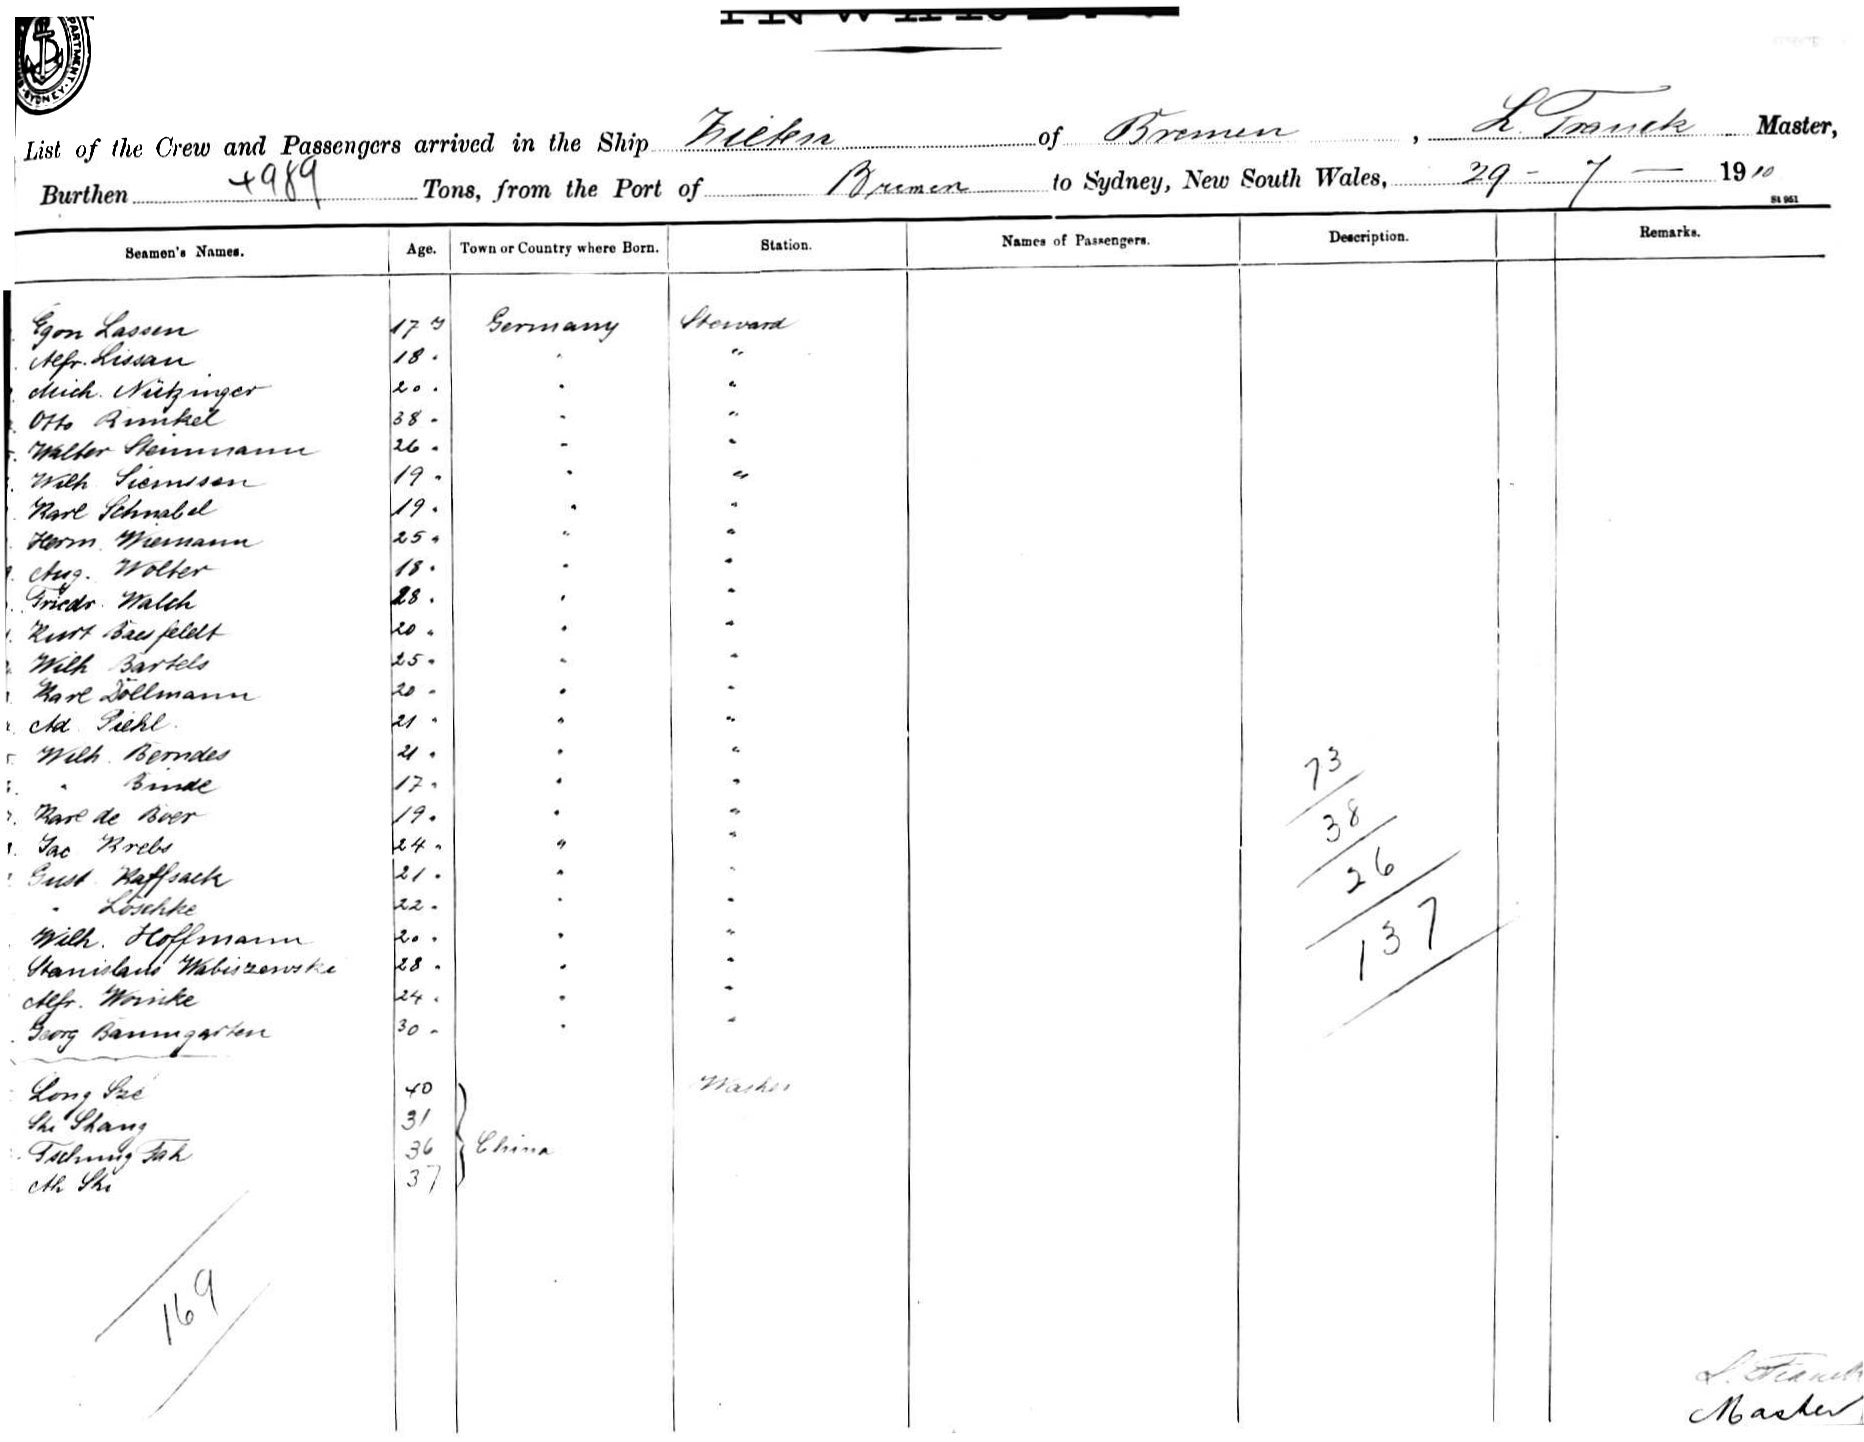 INWARD.
DEPARTMENT. SYDNEY.
List of the Crew and Passengers arrived in the Ship Zieten of Bremen, L. Franck Master,
Burthen 4989 Tons, from the Port of Bremen to Sydney, New South Wales, 29 - 7 - 1910
St 951
Seamen's Names. Age. Town or Country where Born. Station. Names of Passengers. Description. Remarks.
Egon Lassen 17 y Germany Steward
Alfr. Lissau 18 . " "
Mich. Nützinger 20 . " "
Otto Runkel 38 . " "
Walter Steinmann 26 . " "
Wilh Siemssen 19 . " "
Karl Schnabel 19 . " "
Herm. Wiemann 25 . " "
Aug. Wolter 18 . " "
Friedr. Walch 28 . " "
Kurt Baesfeldt 20 . " "
Wilh Bartels 25 . " "
Karl Döllmann 20 . " "
Ad. Piehl. 21 . " "
Wilh. Berndes 21 . " "
" Binde 17 . " "
Karl de Boer 19 . " "
Jac Krebs 24 . " "
Gust. Kaffsack 21 . " "
" Löschke 22 . " "
Wilh. Hoffmann 20 . " "
Stanislaus Wabiszewski 28 . " "
Alfr. Woinke 24 . " "
Georg Baumgarten 30 . " "
73
38
26
137
Long Sze 40 Washer
Shi Shang 31
Tschung Fah 36 China
Ah Shi 37
169
L. Franck
Master